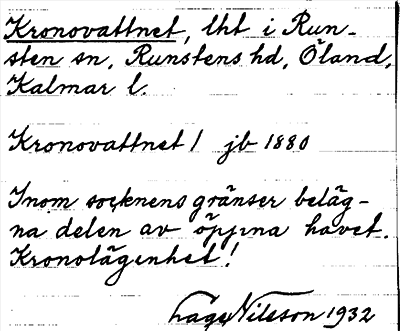 Kronovattnet, lht i Run-
sten sn, Runstens hd, Öland,
Kalmar l.
Kronovattnet / jb 1880
Inom socknens gränser beläg-
na delen av öppna havet.
Kronolägenhet!
Nilsson 1932